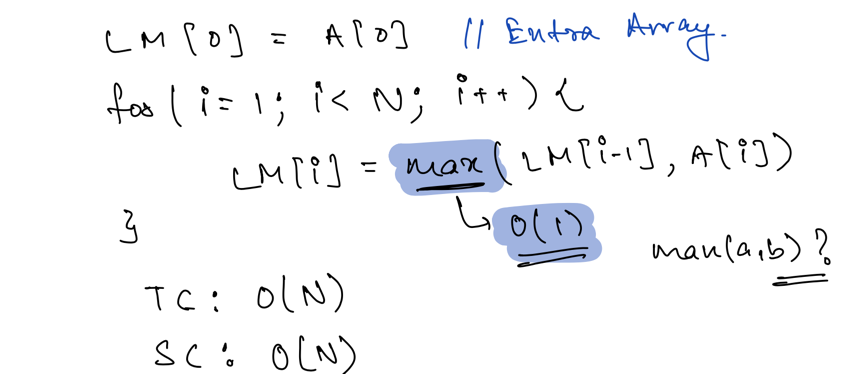 LM[0] = A[0] // Extra Array.
for(i=1; i<N; i++){
LM[i] = max(LM[i-1], A[i])
O(1)
}
max(a,b)?
TC: O(N)
SC: O(N)